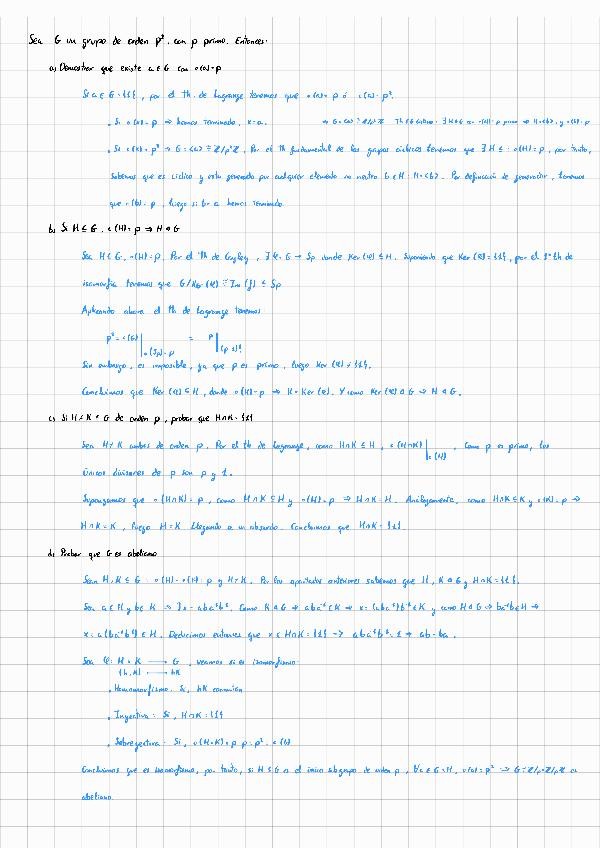 Sea G un grupo de orden p², con p primo. Entonces:
a) Demostrar que existe a∈G con o(a)=p
Si a∈G-{1}, por el th. de Lagrange tenemos que o(a)=p ó o(a)=p².
· Si o(a)=p ⇒ hemos terminado, x=a.
· Si o(a)=p² ⇒ G=<a> ≅ Z/p²Z. Por el th fundamental de los grupos cíclicos tenemos que ∃H≤ : o(H)=p, por tanto,
sabemos que es cíclico y esta generado por cualquier elemento no neutro b∈H : H=<b>. Por definición de generador, tenemos
que o(b)=p, luego si b=a hemos terminado.
b) Si H≤G, o(H)=p ⇒ H◁G
Sea H≤G, o(H)=p. Por el th de Cayley, ∃φ: G→Sp donde Ker(φ)≤H. Suponiendo que Ker(φ)={1}, por el 1º th de
isomorfía tenemos que G/Ker(φ) ≅ Im(f) ≤ Sp
Aplicando ahora el th de Lagrange tenemos
p²=o(G) | o(Sp)=p! ⇒ p | (p-1)!
Sin embargo, es imposible, ya que p es primo, luego Ker(φ)≠{1}.
Concluimos que Ker(φ)≤H, donde o(H)=p ⇒ H=Ker(φ). Y como Ker(φ)◁G ⇒ H◁G.
c) Si H≠K≤G de orden p, probar que H∩K={1}
Sea H≠K ambos de orden p. Por el th de Lagrange, como H∩K≤H, o(H∩K) | o(H), Como p es primo, los
únicos divisores de p son p y 1.
Supongamos que o(H∩K)=p, como H∩K≤H y o(H)=p ⇒ H∩K=H. Análogamente, como H∩K≤K y o(K)=p ⇒
H∩K=K, luego H=K llegando a un absurdo. Concluimos que H∩K={1}.
d) Probar que G es abeliano
Sean H,K≤G : o(H)=o(K)=p y H≠K. Por los apartados anteriores sabemos que H,K◁G y H∩K={1}.
Sea a∈H y b∈K ⇒ ∃x=aba⁻¹b⁻¹. Como K◁G ⇒ aba⁻¹∈K ⇒ x=(aba⁻¹)b⁻¹∈K y como H◁G ⇒ ba⁻¹b⁻¹∈H ⇒
x=a(ba⁻¹b⁻¹)∈H. Deducimos entonces que x∈H∩K={1} ⇒ aba⁻¹b⁻¹=1 ⇒ ab=ba.
Sea φ: H×K → G, veamos si es isomorfismo:
(h,k) → hk
· Homomorfismo: Si, hk conmutan
· Inyectiva: Si, H∩K={1}
· Sobreyectiva: Si, o(H×K)=p·p=p²=o(G)
Concluimos que es isomorfismo, por tanto, si H≤G es el único subgrupo de orden p, ∀a∈G-H, o(a)=p² ⇒ G≅Z/p²Z es
abeliano.